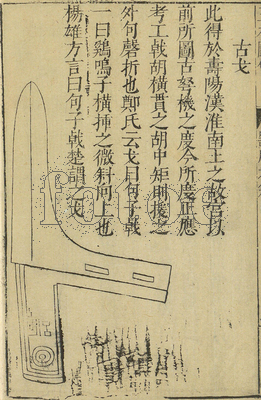 古戈
此得於壽陽漢淮南王之故宮以
前所圖古弩機之度今所度正應
考工戟胡橫貫之胡中矩則援之
外句磬折也鄭氏云戈曰句子戟
曰鷄鳴子橫揷之微斜向上也
楊雄方言曰句子戟楚謂之戈
fotoe